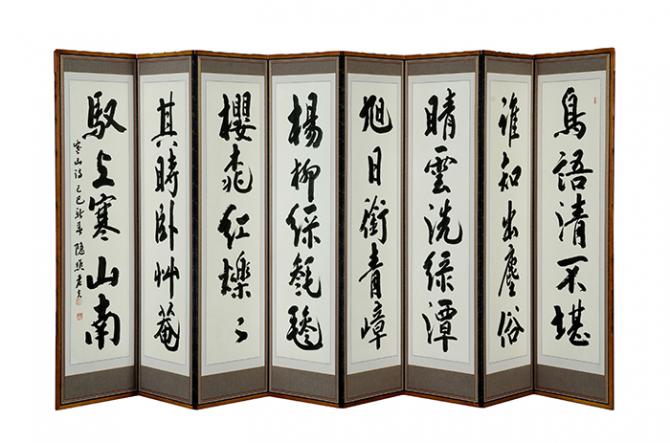 鳥語清不堪
誰知出塵俗
晴雲洗綠潭
旭日銜青嶂
楊柳綠毿毿
櫻桃紅爍〻
其時臥艸菴
馭上寒山南
寒山詩 己巳新春